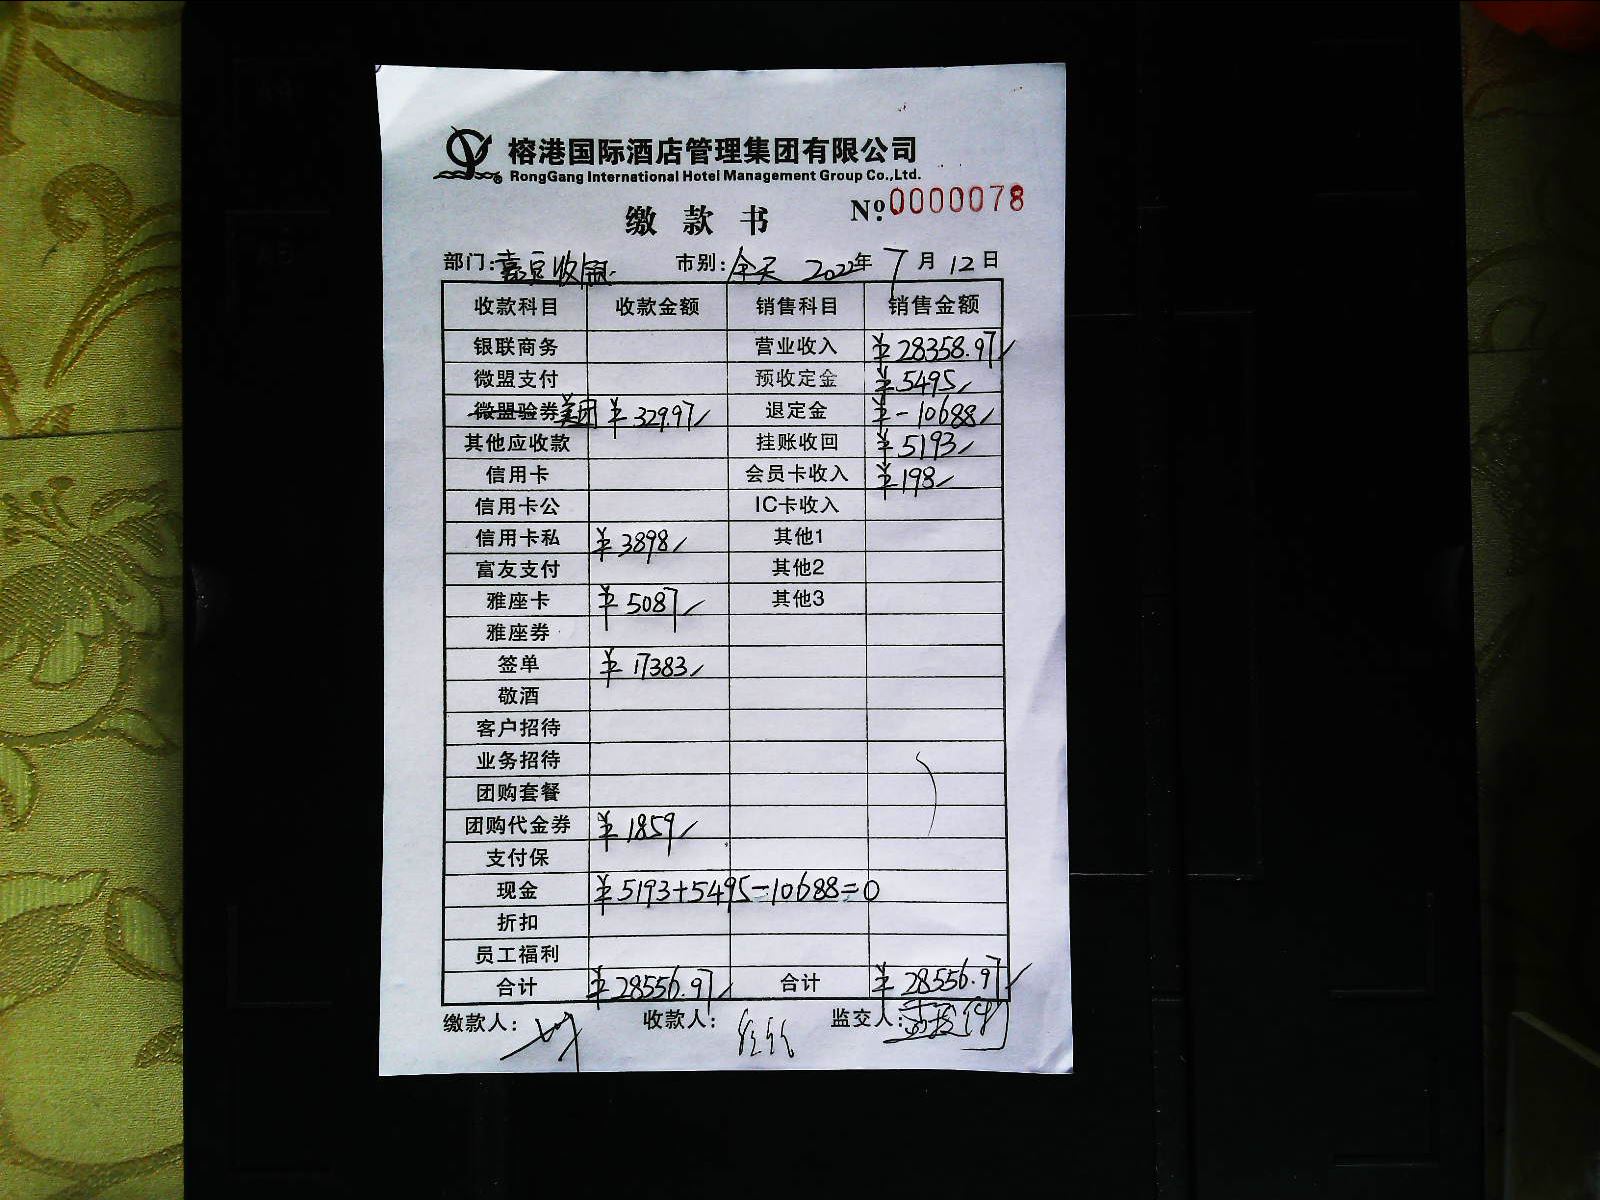 榕港国际酒店管理集团有限公司
RongGang International Hotel Management Group Co.,Ltd.
缴款书 Nº.0000078
部门:嘉定收银 市别:全天 2022年7月12日
收款科目 收款金额 销售科目 销售金额
银联商务 营业收入 ¥28358.97
微盟支付 预收定金 ¥5495
微盟验券 美团 ¥329.97 退定金 ¥-10688
其他应收款 挂账收回 ¥5193
信用卡 会员卡收入 ¥198
信用卡公 IC卡收入
信用卡私 ¥3898 其他1
富友支付 其他2
雅座卡 ¥5087 其他3
雅座券
签单 ¥17383
敬酒
客户招待
业务招待
团购套餐
团购代金券 ¥1859
支付保
现金 ¥5193+5495-10688=0
折扣
员工福利
合计 ¥28556.97 合计 ¥28556.97
缴款人: 收款人: 监交人: